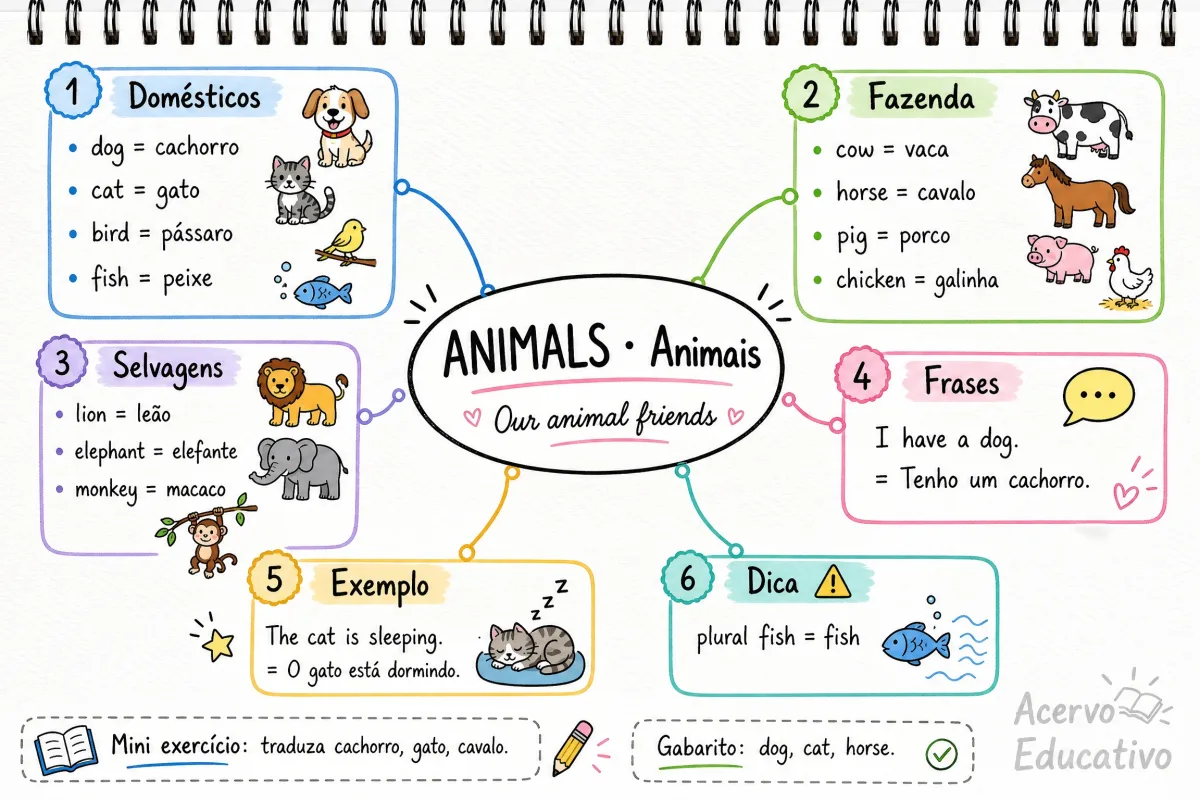 1 Domésticos
• dog = cachorro
• cat = gato
• bird = pássaro
• fish = peixe
2 Fazenda
• cow = vaca
• horse = cavalo
• pig = porco
• chicken = galinha
ANIMALS · Animais
Our animal friends
3 Selvagens
• lion = leão
• elephant = elefante
• monkey = macaco
4 Frases
I have a dog.
= Tenho um cachorro.
5 Exemplo
The cat is sleeping.
= O gato está dormindo.
z z z z
6 Dica
plural fish = fish
Mini exercício: traduza cachorro, gato, cavalo.
Gabarito: dog, cat, horse.
Acervo
Educativo